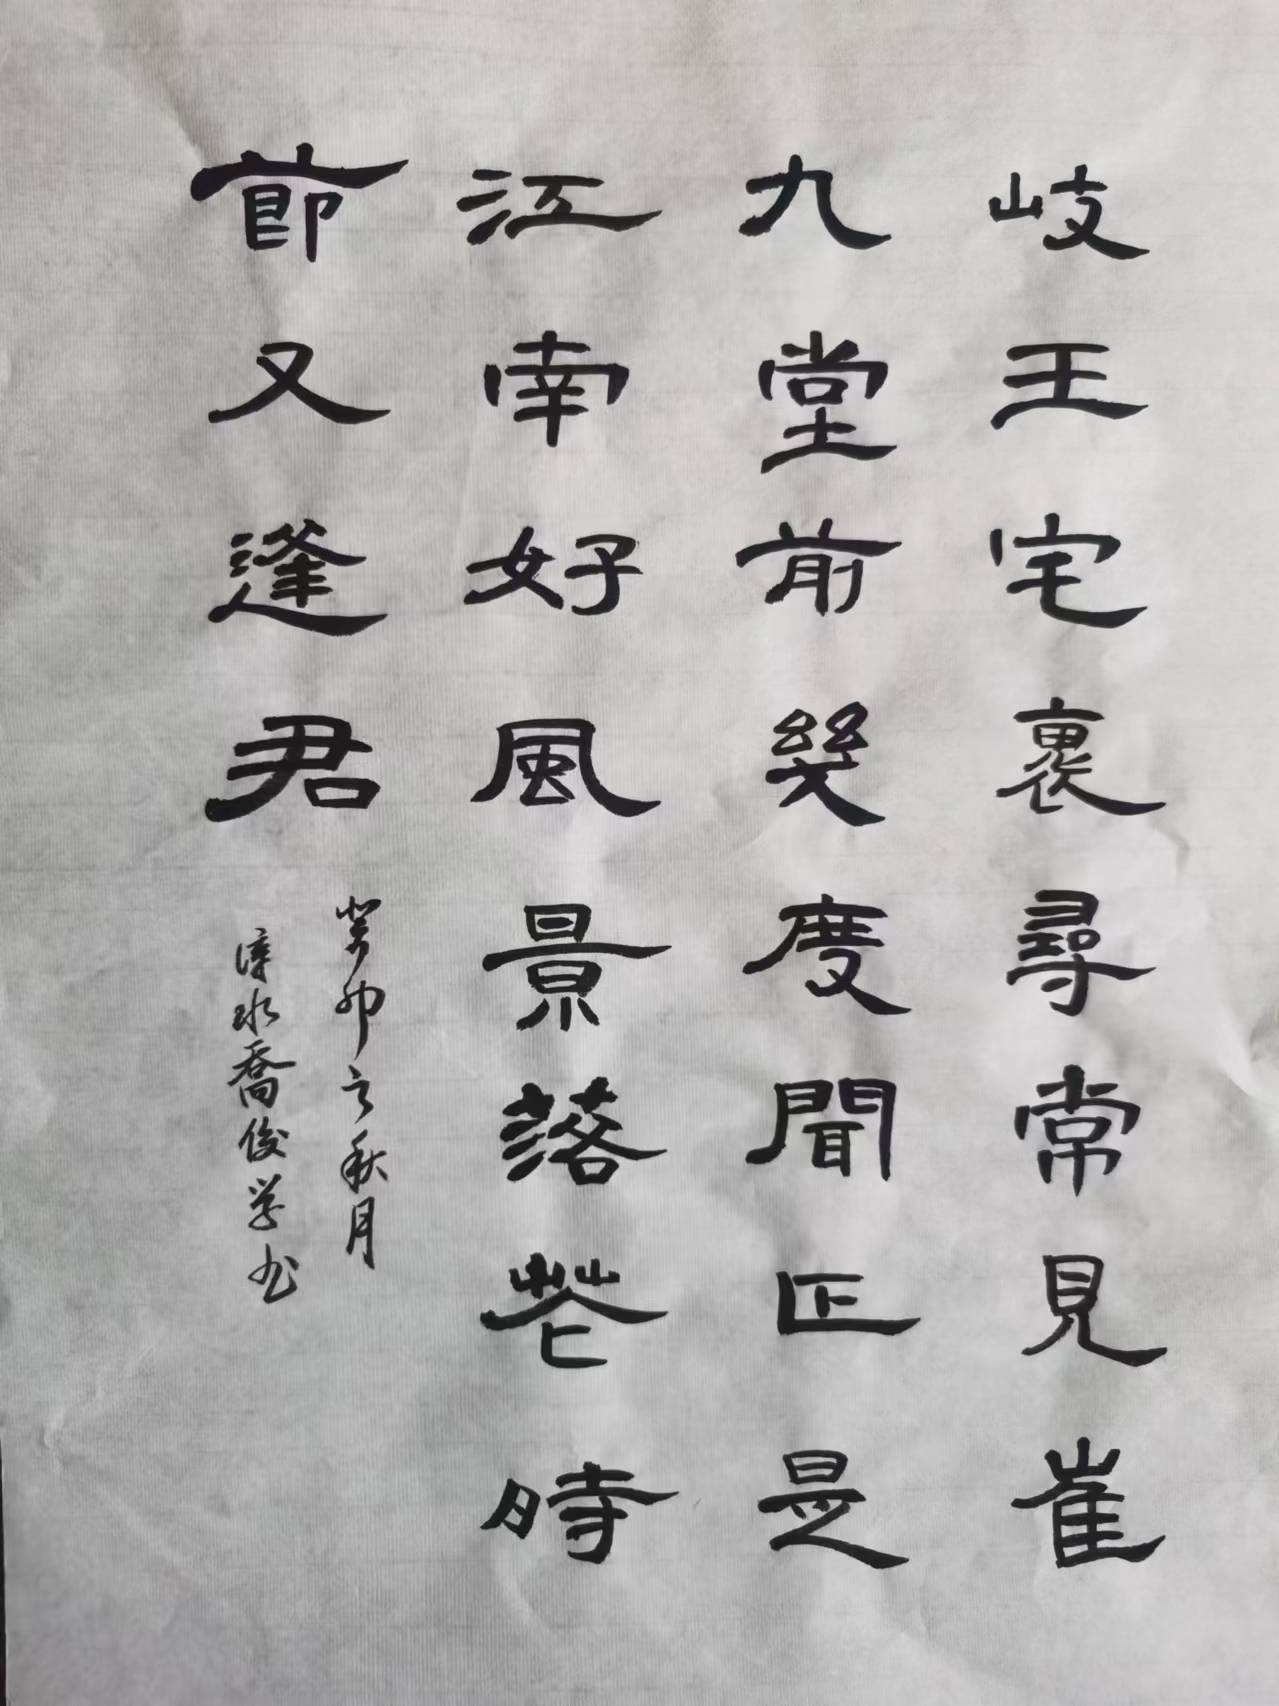 岐王宅裏尋常見崔
九堂前幾度聞正是
江南好風景落花時
節又逢君
癸卯之秋月
漳水喬俊学书